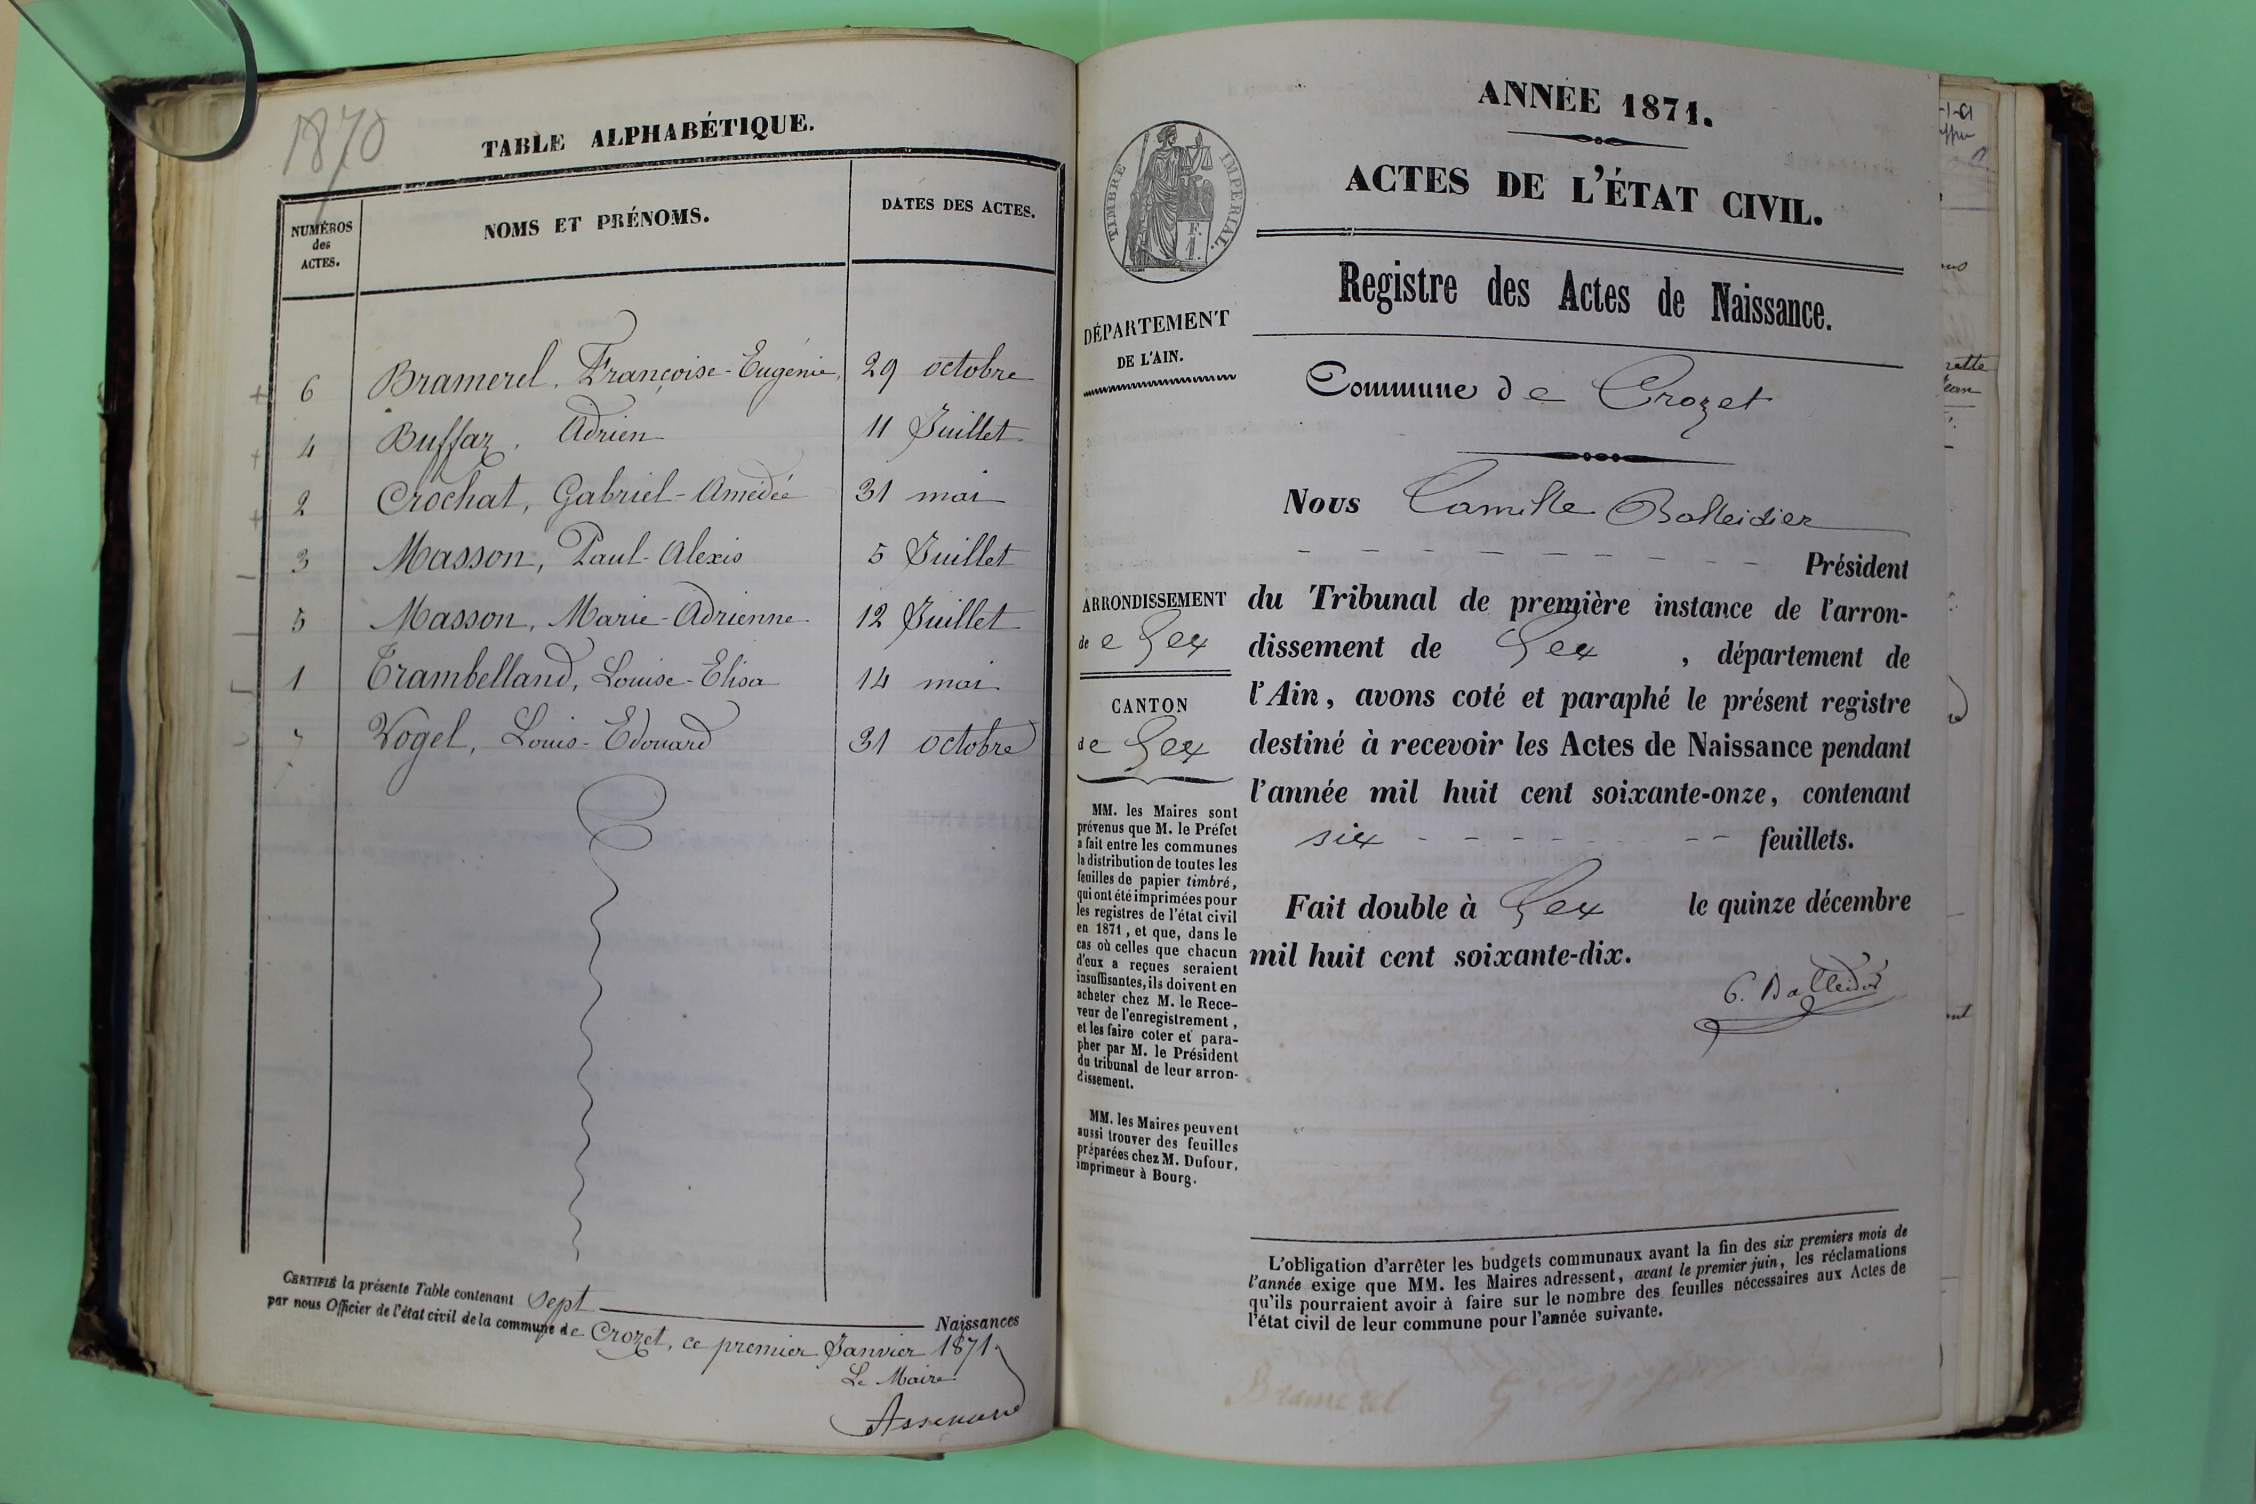 1870
TABLE ALPHABÉTIQUE.
NUMÉROS
des
ACTES.
NOMS ET PRÉNOMS.
DATES DES ACTES.
6 Bramerel, Françoise-Eugénie, 29 octobre
4 Buffaz, Adrien 11 Juillet
2 Crochat, Gabriel-Amédée 31 mai
3 Masson, Paul-Alexis 5 Juillet
5 Masson, Marie-Adrienne 12 Juillet
1 Trambelland, Louise-Elisa 14 mai
7 Vogel, Louis-Edouard 31 octobre
CERTIFIÉ la présente Table contenant sept Naissances
par nous Officier de l'état civil de la commune de Crozet, ce premier Janvier 1871
Le Maire
ANNÉE 1871.
ACTES DE L'ÉTAT CIVIL.
TIMBRE IMPÉRIAL.
1 F.
Registre des Actes de Naissance.
DÉPARTEMENT
DE L'AIN.
Commune de Crozet
Nous Camille Balleidier
Président
du Tribunal de première instance de l'arron-
dissement de Gex, département de
l'Ain, avons coté et paraphé le présent registre
destiné à recevoir les Actes de Naissance pendant
l'année mil huit cent soixante-onze, contenant
six feuillets.
Fait double à Gex le quinze décembre
mil huit cent soixante-dix.
C. Balleidier
ARRONDISSEMENT
de Gex
CANTON
de Gex
MM. les Maires sont
prévenus que M. le Préfet
a fait entre les communes
la distribution de toutes les
feuilles de papier timbré,
qui ont été imprimées pour
les registres de l'état civil
en 1871, et que, dans le
cas où celles que chacun
d'eux a reçues seraient
insuffisantes, ils doivent en
acheter chez M. le Rece-
veur de l'enregistrement,
et les faire coter et para-
pher par M. le Président
du tribunal de leur arron-
dissement.
MM. les Maires peuvent
aussi trouver des feuilles
préparées chez M. Dufour,
imprimeur à Bourg.
L'obligation d'arrêter les budgets communaux avant la fin des six premiers mois de
l'année exige que MM. les Maires adressent, avant le premier juin, les réclamations
qu'ils pourraient avoir à faire sur le nombre des feuilles nécessaires aux Actes de
l'état civil de leur commune pour l'année suivante.
Bramerel